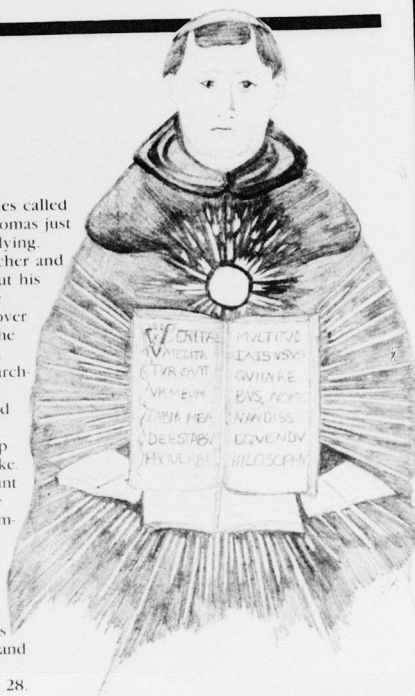 es called
omas just
lying.
cher and
ut his
over
he
urch-
d
p
ke.
unt
m-
s
and
28.
VERITAE
MEDITA
TVR GVTT
VR MEVM
LABIA MEA
DEESTABV
PROVERBI
MVLTITVD
INIS VSVS
QVI IN RE
BVS, NOMI
NANDISS
EQVENDV
HILOSOPHV